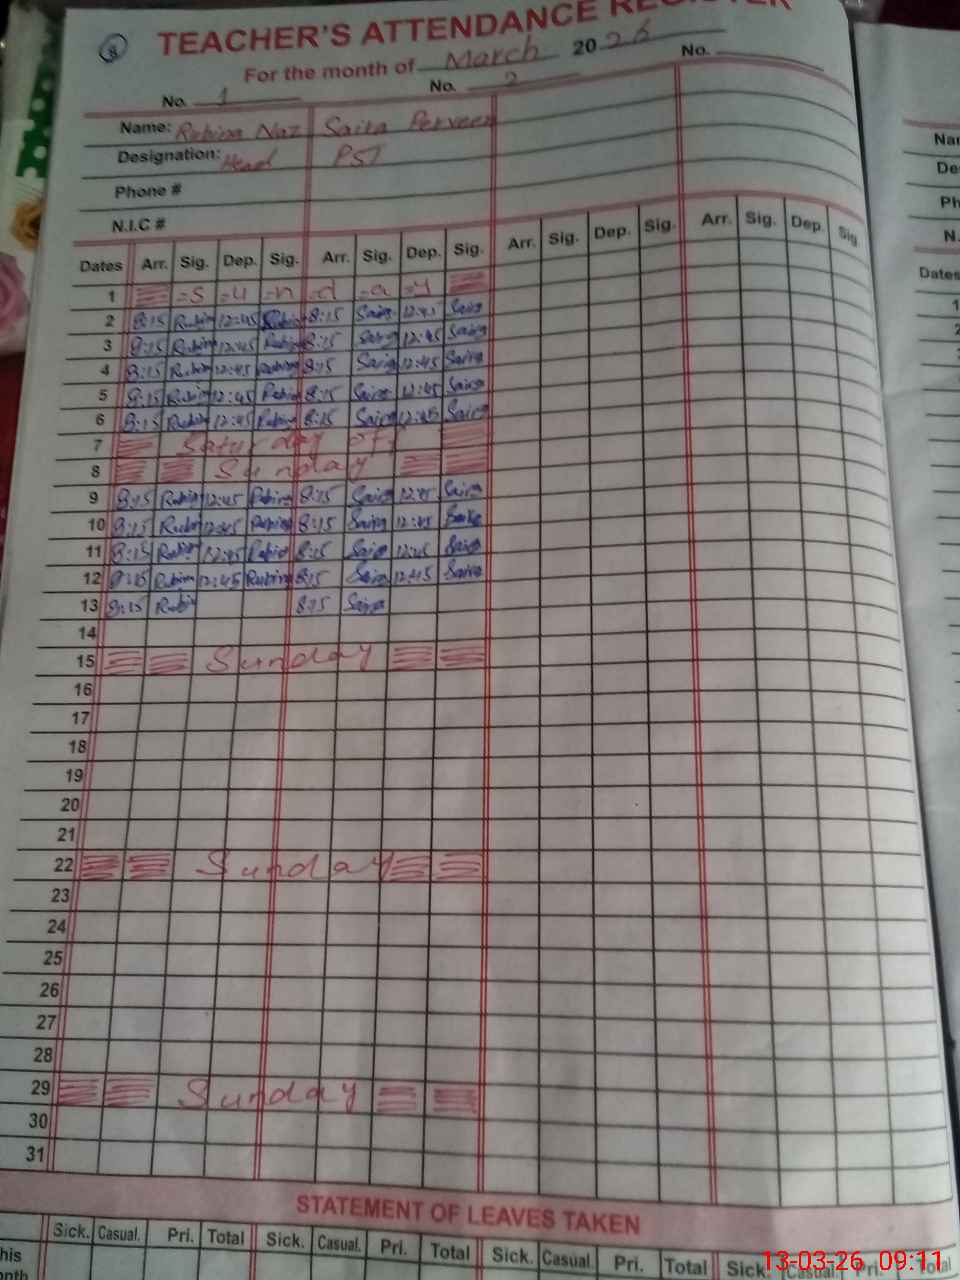 8 TEACHER'S ATTENDANCE REGISTER
For the month of March 2026
No. 1 No. 2 No.
Name: Rubina Naz Saira Perveen
Designation: Head PST
Phone #
N.I.C #
Dates Arr. Sig. Dep. Sig. Arr. Sig. Dep. Sig. Arr. Sig. Dep. Sig. Arr. Sig. Dep. Sig
1 = S = u = n = d = a = y
2 8:15 Rubina 12:45 Rubina 8:15 Saira 12:45 Saira
3 8:15 Rubina 12:45 Rubina 8:15 Saira 12:45 Saira
4 8:15 Rubina 12:45 Rubina 8:15 Saira 12:45 Saira
5 8:15 Rubina 12:45 Rubina 8:15 Saira 12:45 Saira
6 8:15 Rubina 12:45 Rubina 8:15 Saira 12:45 Saira
7 Saturday off
8 Sunday
9 8:15 Rubina 12:45 Rubina 8:15 Saira 12:45 Saira
10 8:15 Rubina 12:45 Rubina 8:15 Saira 12:45
11 8:15 Rubina 12:45 Rubina 8:15 Saira 12:45 Saira
12 8:15 Rubina 12:45 Rubina 8:15 Saira 12:45 Saira
13 8:15 Rubin 8:15 Saira
14
15 Sunday
16
17
18
19
20
21
22 Sunday
23
24
25
26
27
28
29 Sunday
30
31
STATEMENT OF LEAVES TAKEN
Sick. Casual. Pri. Total Sick. Casual. Pri. Total Sick. Casual. Pri. Total Sick. Casual. Pri. Total
his
onth
13-03-26 09:11
Nar
De
Ph
N.
Dates
1